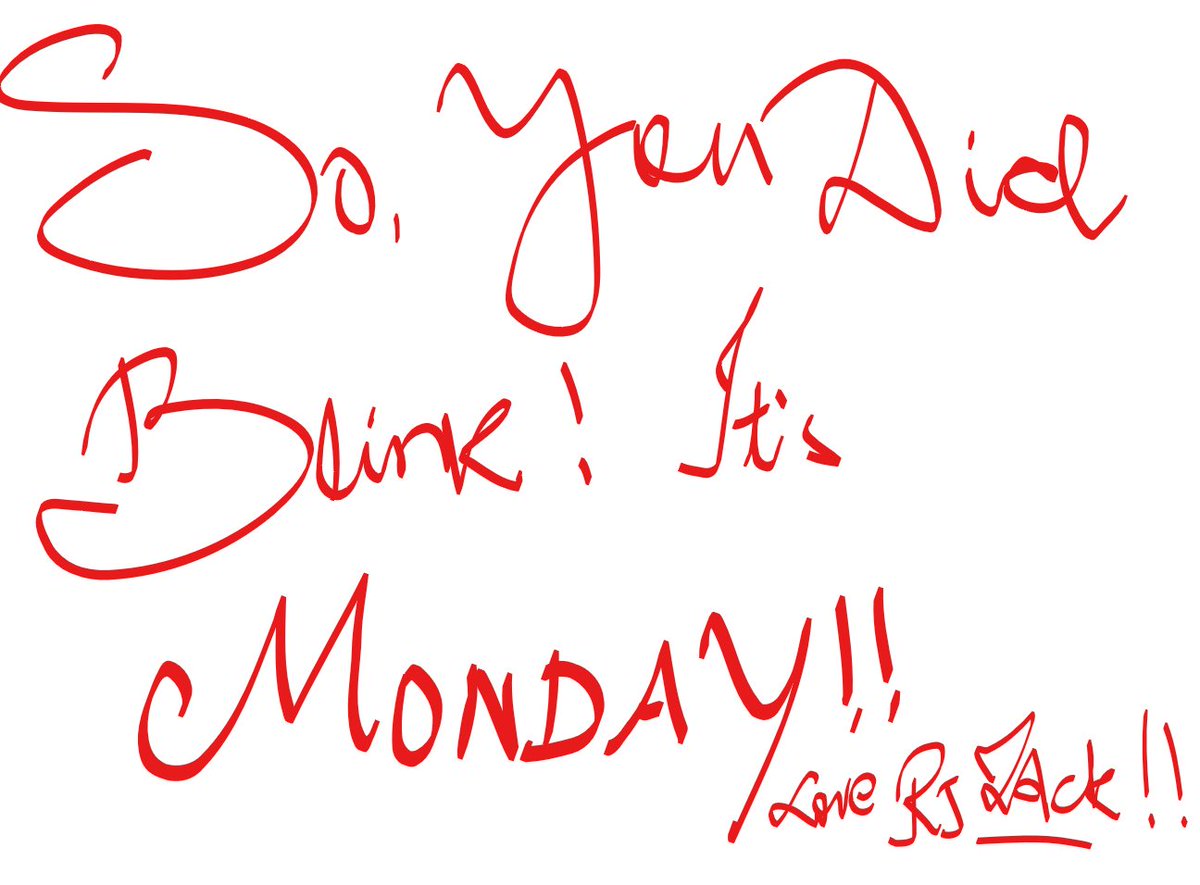 So, You Did
Blink! It's
MONDAY!!
Love RJ ZAck!!